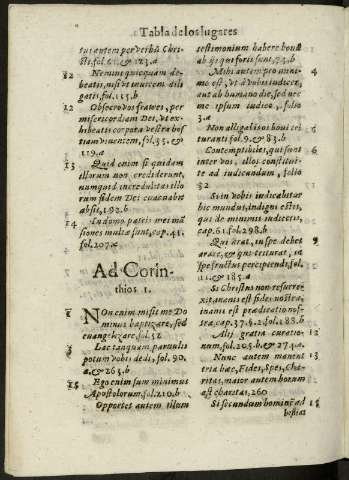 Tabla de los lugares
tur autem per verbũ Chri-
sti, fol. 6. & 123.a
12 Nemini quicquam de-
beatis, nisi vt inuicem dili
gatis, fol. 115.b
12 Obsecro vos fratres, per
misericordiam Dei, vt ex-
hibeatis corpora vestra hos
tiam viuentem, fol. 35. &
119.a
13 Quid enim si quidam
illorum non crediderunt,
numquid incredulitas illo
rum fidem Dei euacuabit
absit, 192.b
14 In domo patris mei mã
siones multæ sunt, cap. 41.
fol. 207.
Ad Corin-
thios 1.
NOn enim misit me Do
minus baptizare, sed
euangelizare, fol. 32
Lac tanquam paruulis
potum vobis dedi, fol. 90.
a, & 263.b
15 Ego enim sum minimus
Apostolorum, fol. 210.b
Oportet autem illum
testimonium habere bonũ
ab ijs qui foris sunt, 74.b
Mihi autem pro mini- 4
mo est, vt à vobis iudicer,
aut ab humano die, sed nec
me ipsum iudico, folio
3.a
Non alligabis os boui tri
turanti fol. 9. & 83.b
Contemptibiles, qui sunt
inter vos, illos constitui-
te ad iudicandum, folio
52
Si in vobis iudicabitur
hic mundus, indigni estis,
qui de minimis iudicetis,
cap. 61. fol. 298.b
Qui arat, in spe debet 9
arare, & qui triturat, in
spe fructus percipiendi, fol.
& 185.a
Si Christus non resurre-
xit, inanis est fides vestra,
inanis est prædicatio nos-
tra, cap. 37. §. 2. fol. 188.b
Alij gratia curatio- 12
num, fol. 205.b. & 274.a.
Nunc autem manent 13
tria hæc, Fides, Spes, Cha-
ritas, maior autem horum
est charitas, 260
Si secundum hominẽ ad 15
bestias